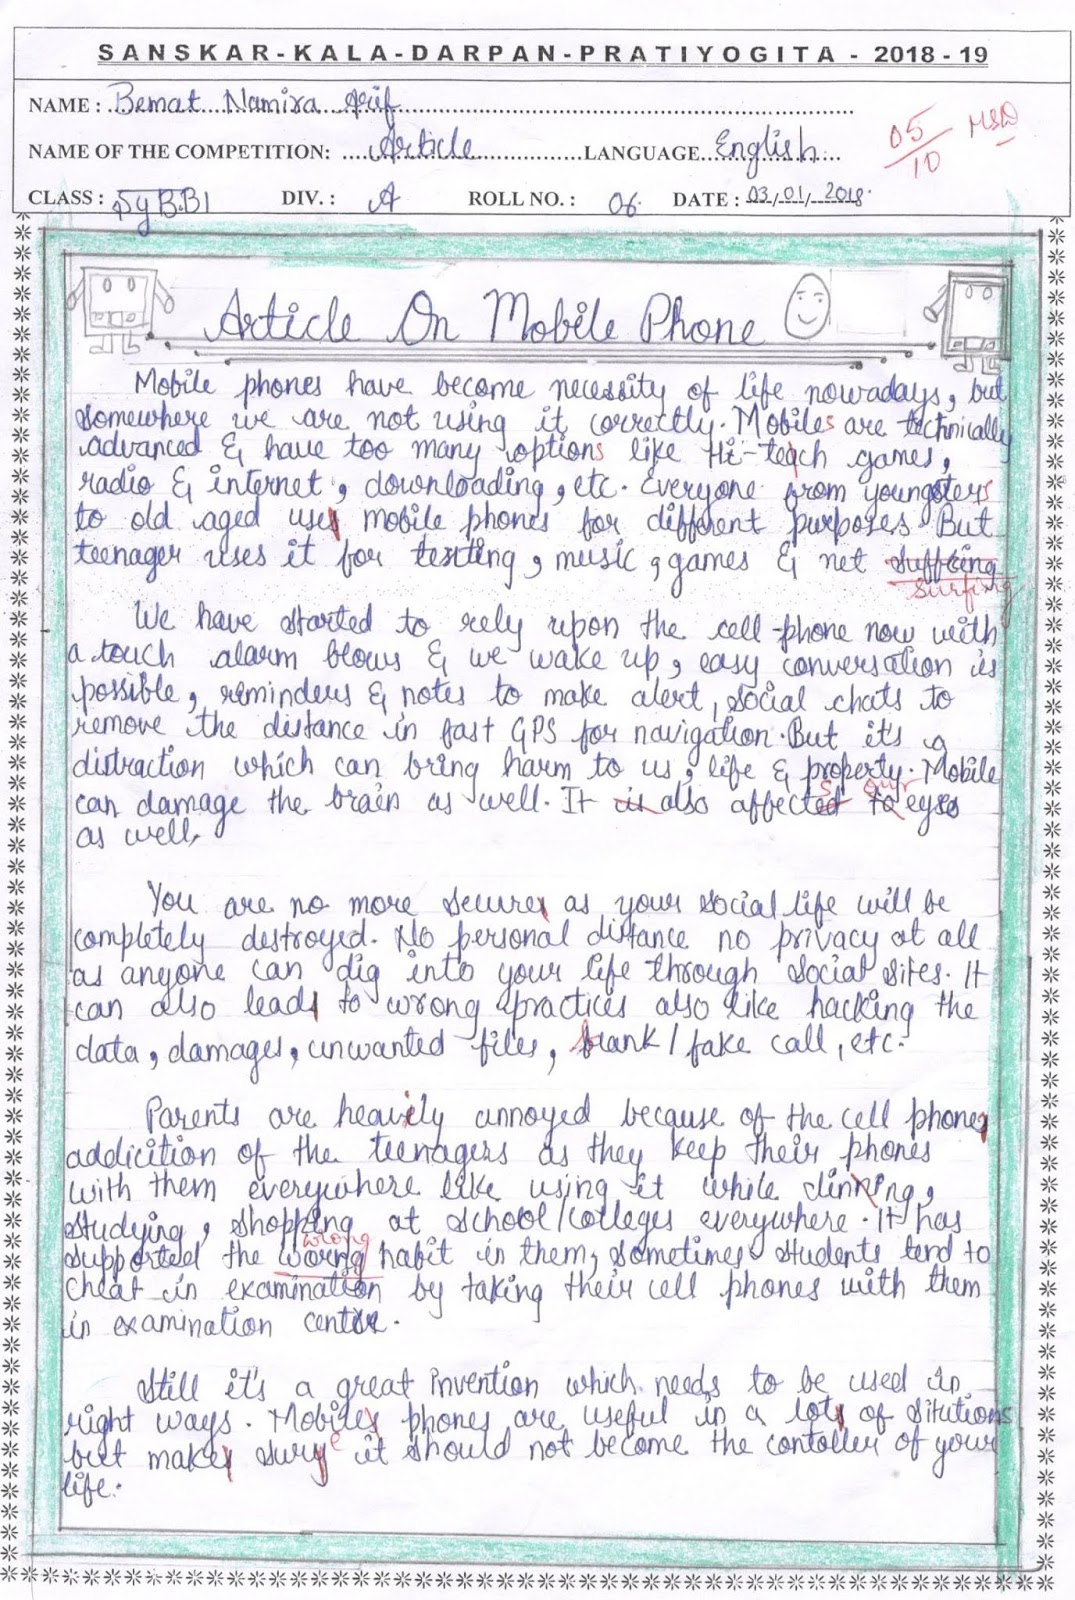 SANSKAR-KALA-DARPAN-PRATIYOGITA - 2018-19
NAME : Bemat Namira Arif
05/10
NAME OF THE COMPETITION: Article LANGUAGE English
CLASS : SyBBI DIV. : A ROLL NO. : 06 DATE : 03/01/2018
Article On Mobile Phone
Mobile phones have become necessity of life nowadays, but
somewhere we are not using it correctly. Mobiles are technically
advanced & have too many options like Hi-tech games,
radio & internet, downloading, etc. Everyone from youngsters
to old aged uses mobile phones for different purposes. But
teenager uses it for texting, music, games & net suffering
surfing
We have started to rely upon the cell-phone now with
a touch alarm blows & we wake up, easy conversation is
possible, reminders & notes to make alert, social chats to
remove the distance in fast GPS for navigation. But it's a
distraction which can bring harm to us, life & property. Mobile
s our
can damage the brain as well. It is also affected to eyes
as well.
You are no more secure as your social life will be
completely destroyed. No personal distance no privacy at all
as anyone can dig into your life through social sites. It
can also leads to wrong practices also like hacking the
data, damages, unwanted files, blank / fake call, etc.
Parents are heavily annoyed because of the cell phone
addicition of the teenagers as they keep their phones
with them everywhere like using it while dinning,
studying, shopping at school/colleges everywhere. It has
wrong
supported the worng habit in them, sometimes students tend to
cheat in examination by taking their cell phones with them
in examination centre.
Still it's a great invention which needs to be used in
right ways. Mobiles phones are useful in a lots of situtions
e
but makes sury it should not become the contoller of your
life.